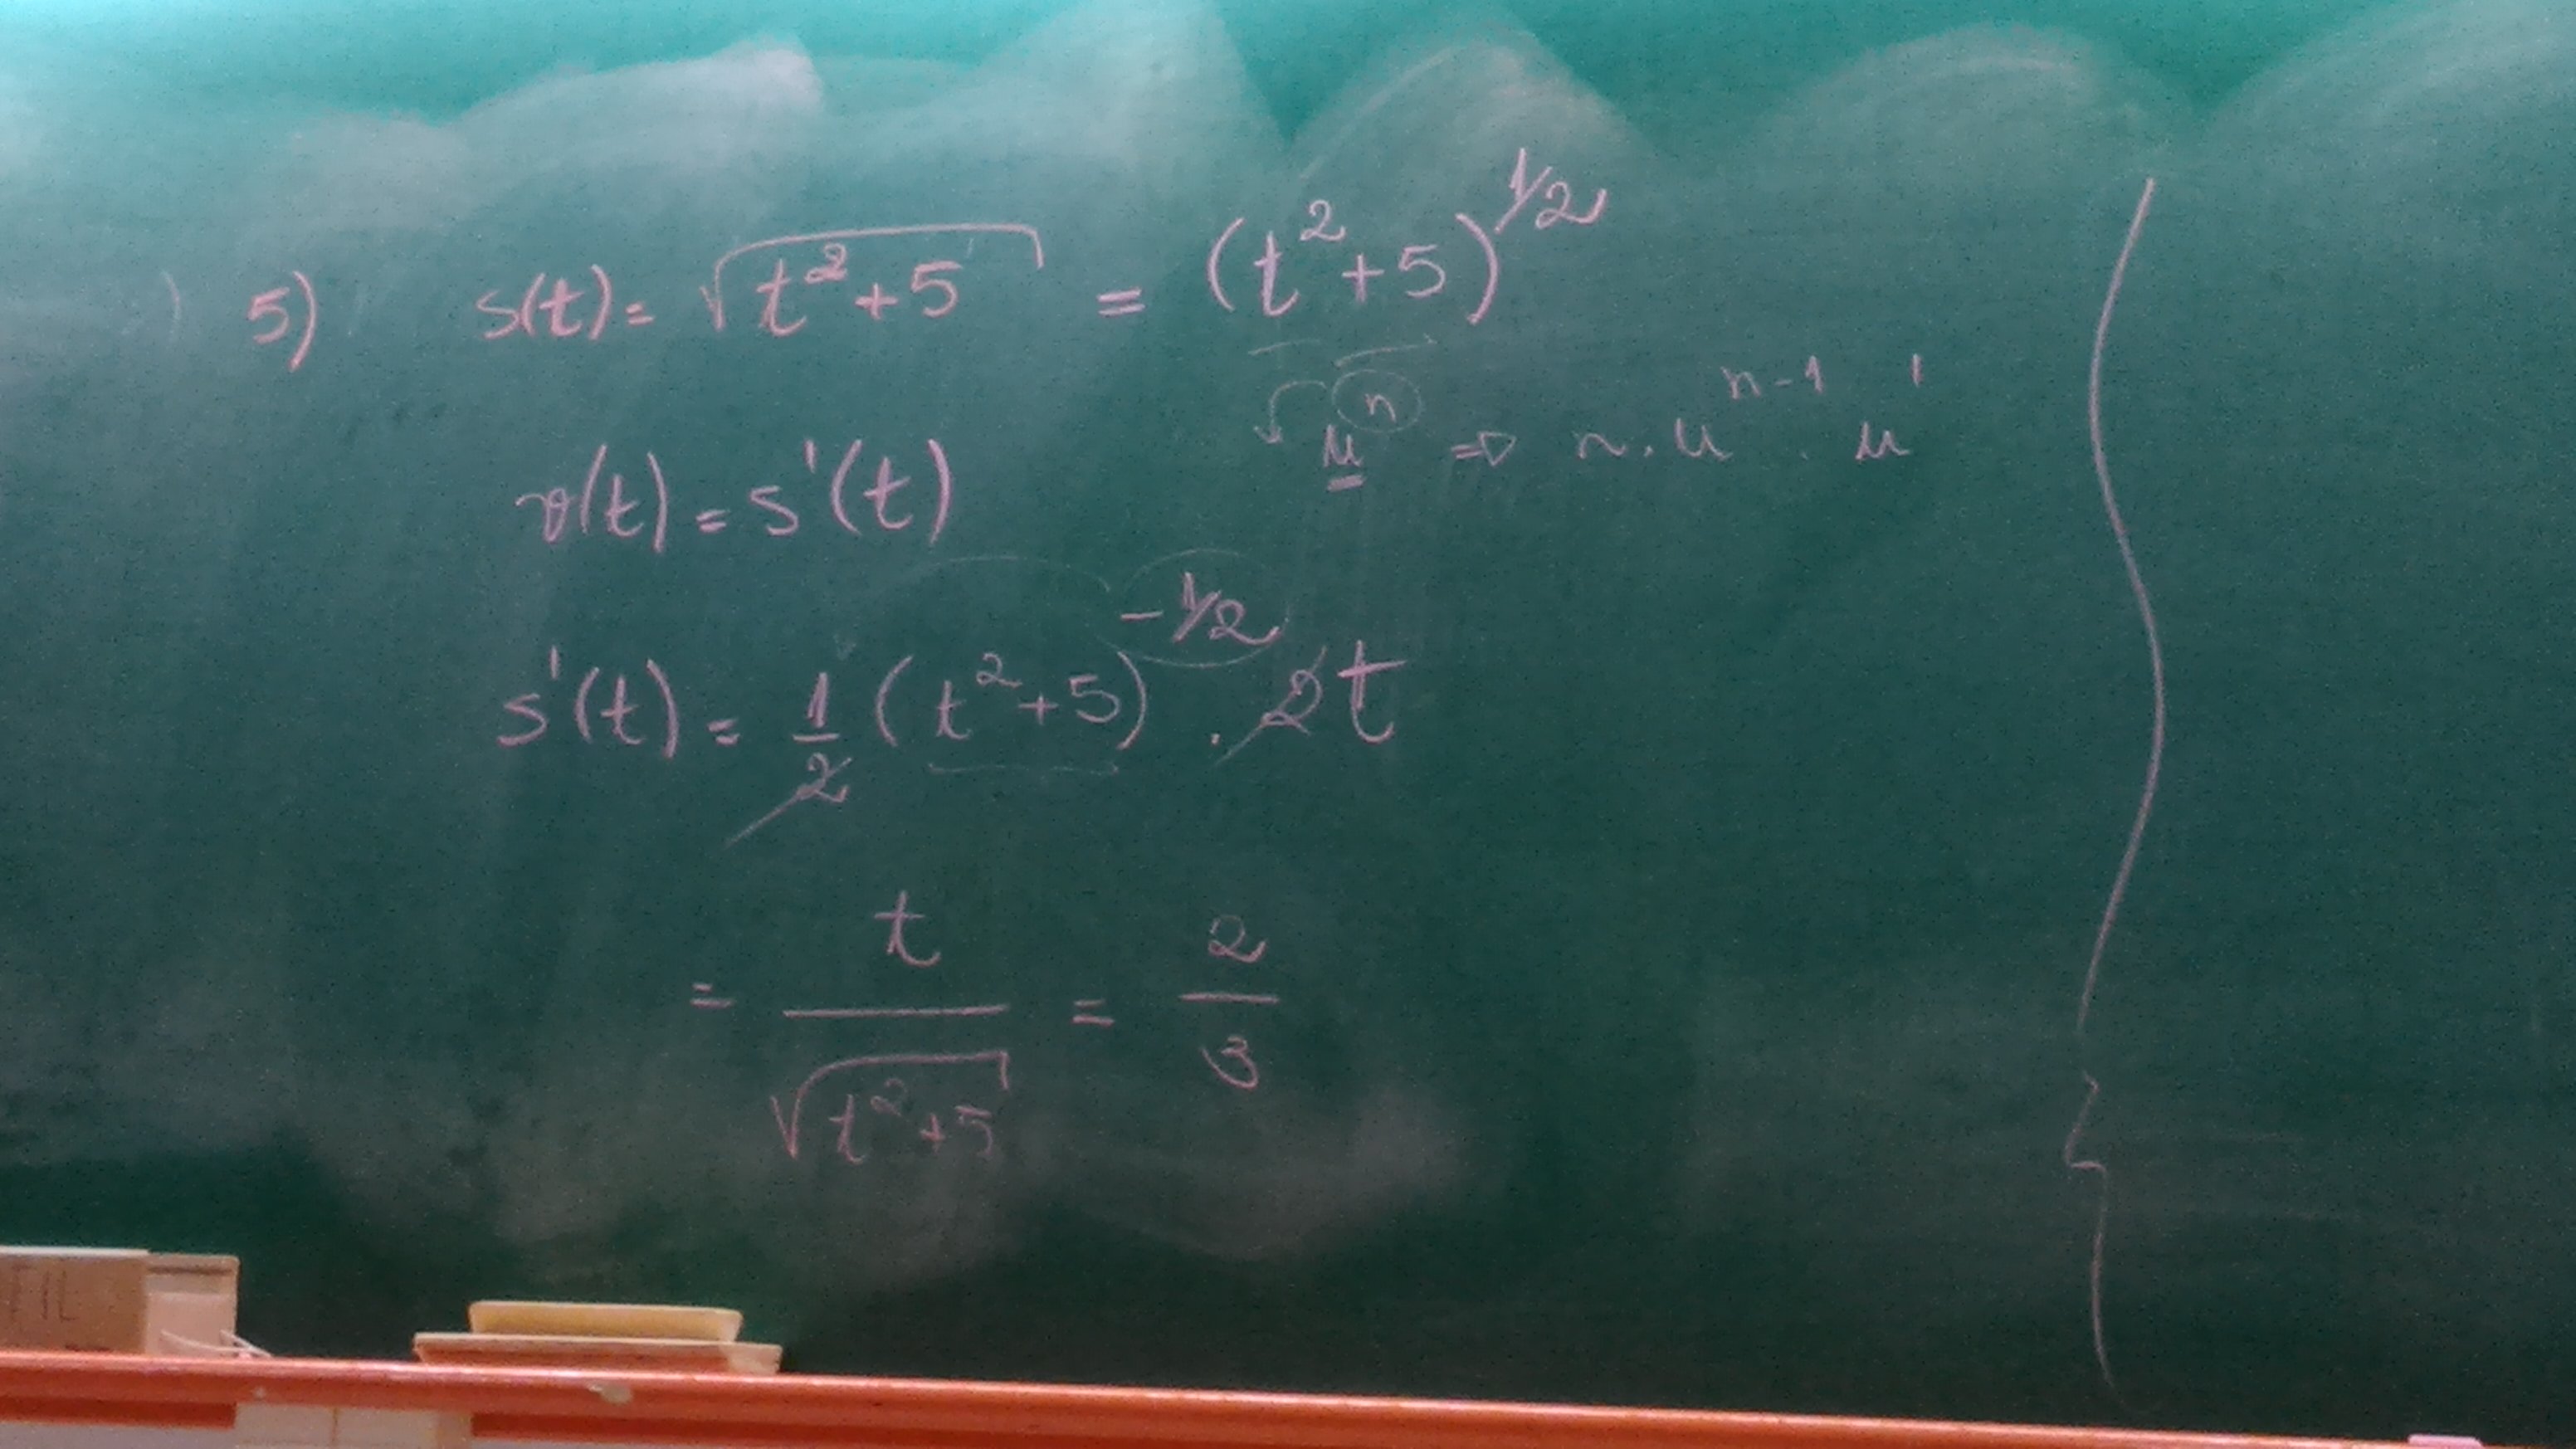 5) s(t) = √(t²+5) = (t²+5)^1/2
uⁿ ⇒ n.uⁿ⁻¹ . u'
v(t) = s'(t)
s'(t) = 1/2 (t²+5)^-1/2 . 2t
= t/√(t²+5) = 2/3